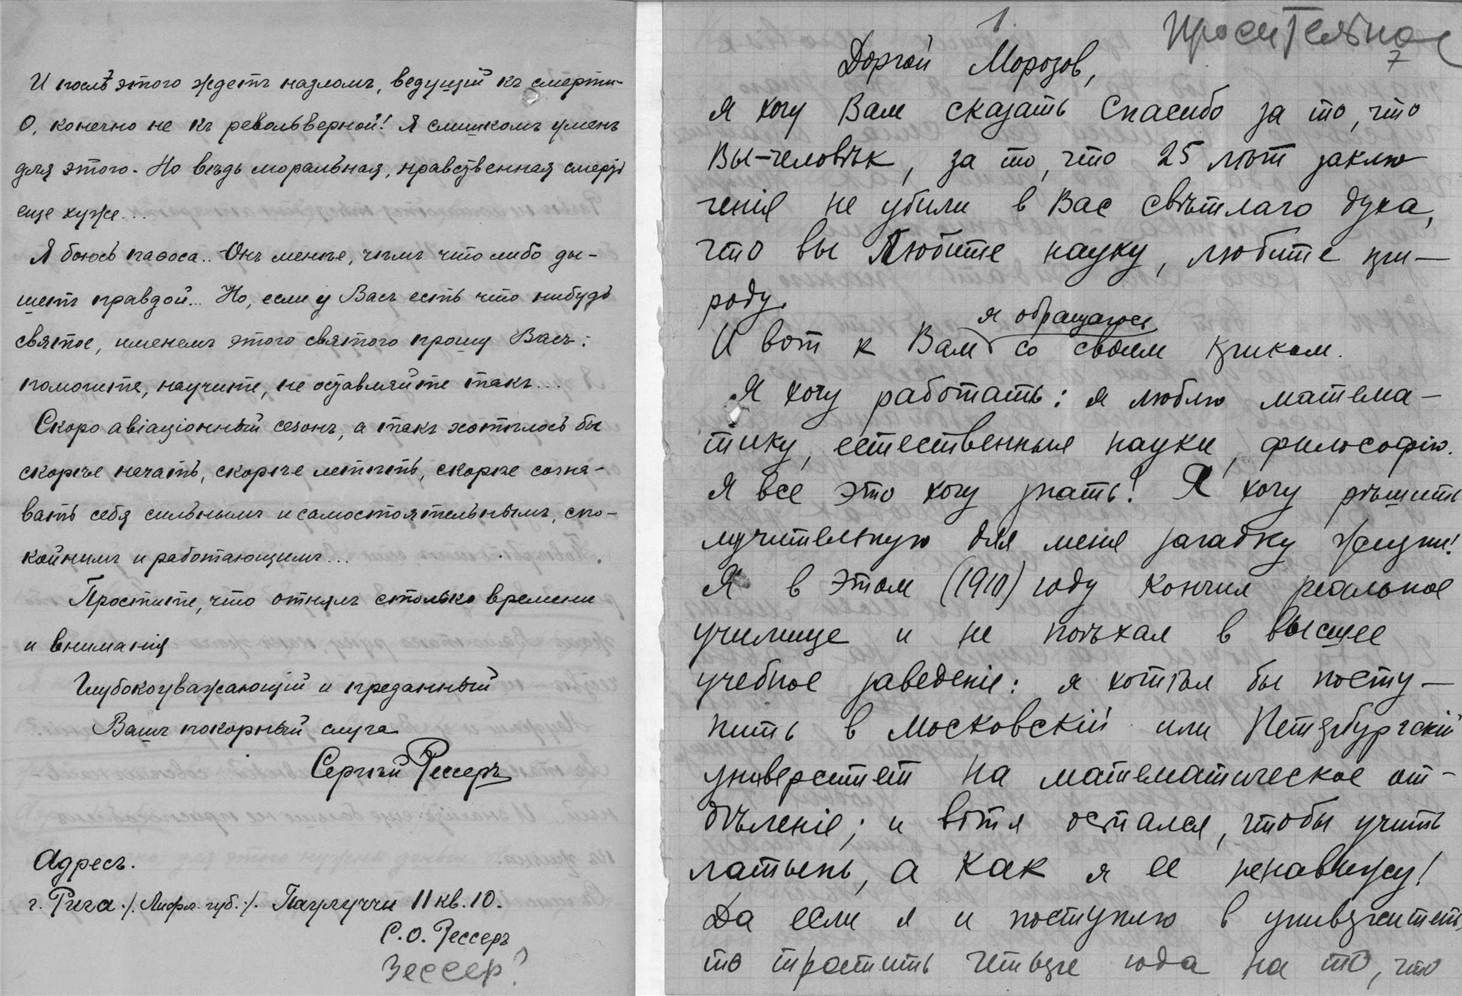 И послѣ этого ждетъ надломъ, ведущій къ смерти-
О, конечно не къ револьверной! Я слишкомъ уменъ
для этого. Но вѣдь моральная, нравственная смерть
еще хуже...
Я боюсь паѳоса.. Онъ менѣе, чѣмъ что либо ды-
шетъ правдой... Но, если у Васъ есть что нибудь
святое, именемъ этого святого прошу Васъ:
помогите, научите, не оставляйте такъ...
Скоро авіаціонный сезонъ, а такъ хотѣлось бы
скорѣе начать, скорѣе летѣть, скорѣе созна-
вать себя сильнымъ и самостоятельнымъ, спо-
койнымъ и работающимъ...
Простите, что отнялъ столько времени
и вниманія
Глубокоуважающій и преданный
Вашъ покорный слуга
Сергѣй Рессеръ
Адресъ.
г. Рига ./. Лифл. губ. ./. Паулуччи 11 кв. 10.
С. О. Рессеръ
Зессер?
1.
Просительное
7
Дорогой Морозов,
Я хочу Вам сказать Спасибо за то, что
Вы-человѣк, за то, что 25 лѣт заклю
ченія не убили в Вас свѣтлаго духа,
что вы Любите науку, любите при-
роду.
я обращаюсь
И вот к Вам со своим криком.
Я хочу работать: я люблю матема-
тику, естественныя науки, философію.
Я все это хочу знать! Я хочу рѣшить
мучительную для меня загадку жизни!
Я в этом (1910) году кончил реальное
училище и не поѣхал в высшее
учебное заведеніе: я хотѣл бы посту-
пить в Московскій или Петербургскій
университет на математическое от-
дѣленіе; и вот я остался, чтобы учить
латынь, а как я ее ненавижу!
Да если я и поступлю в университет,
то тратить четыре года на то, что